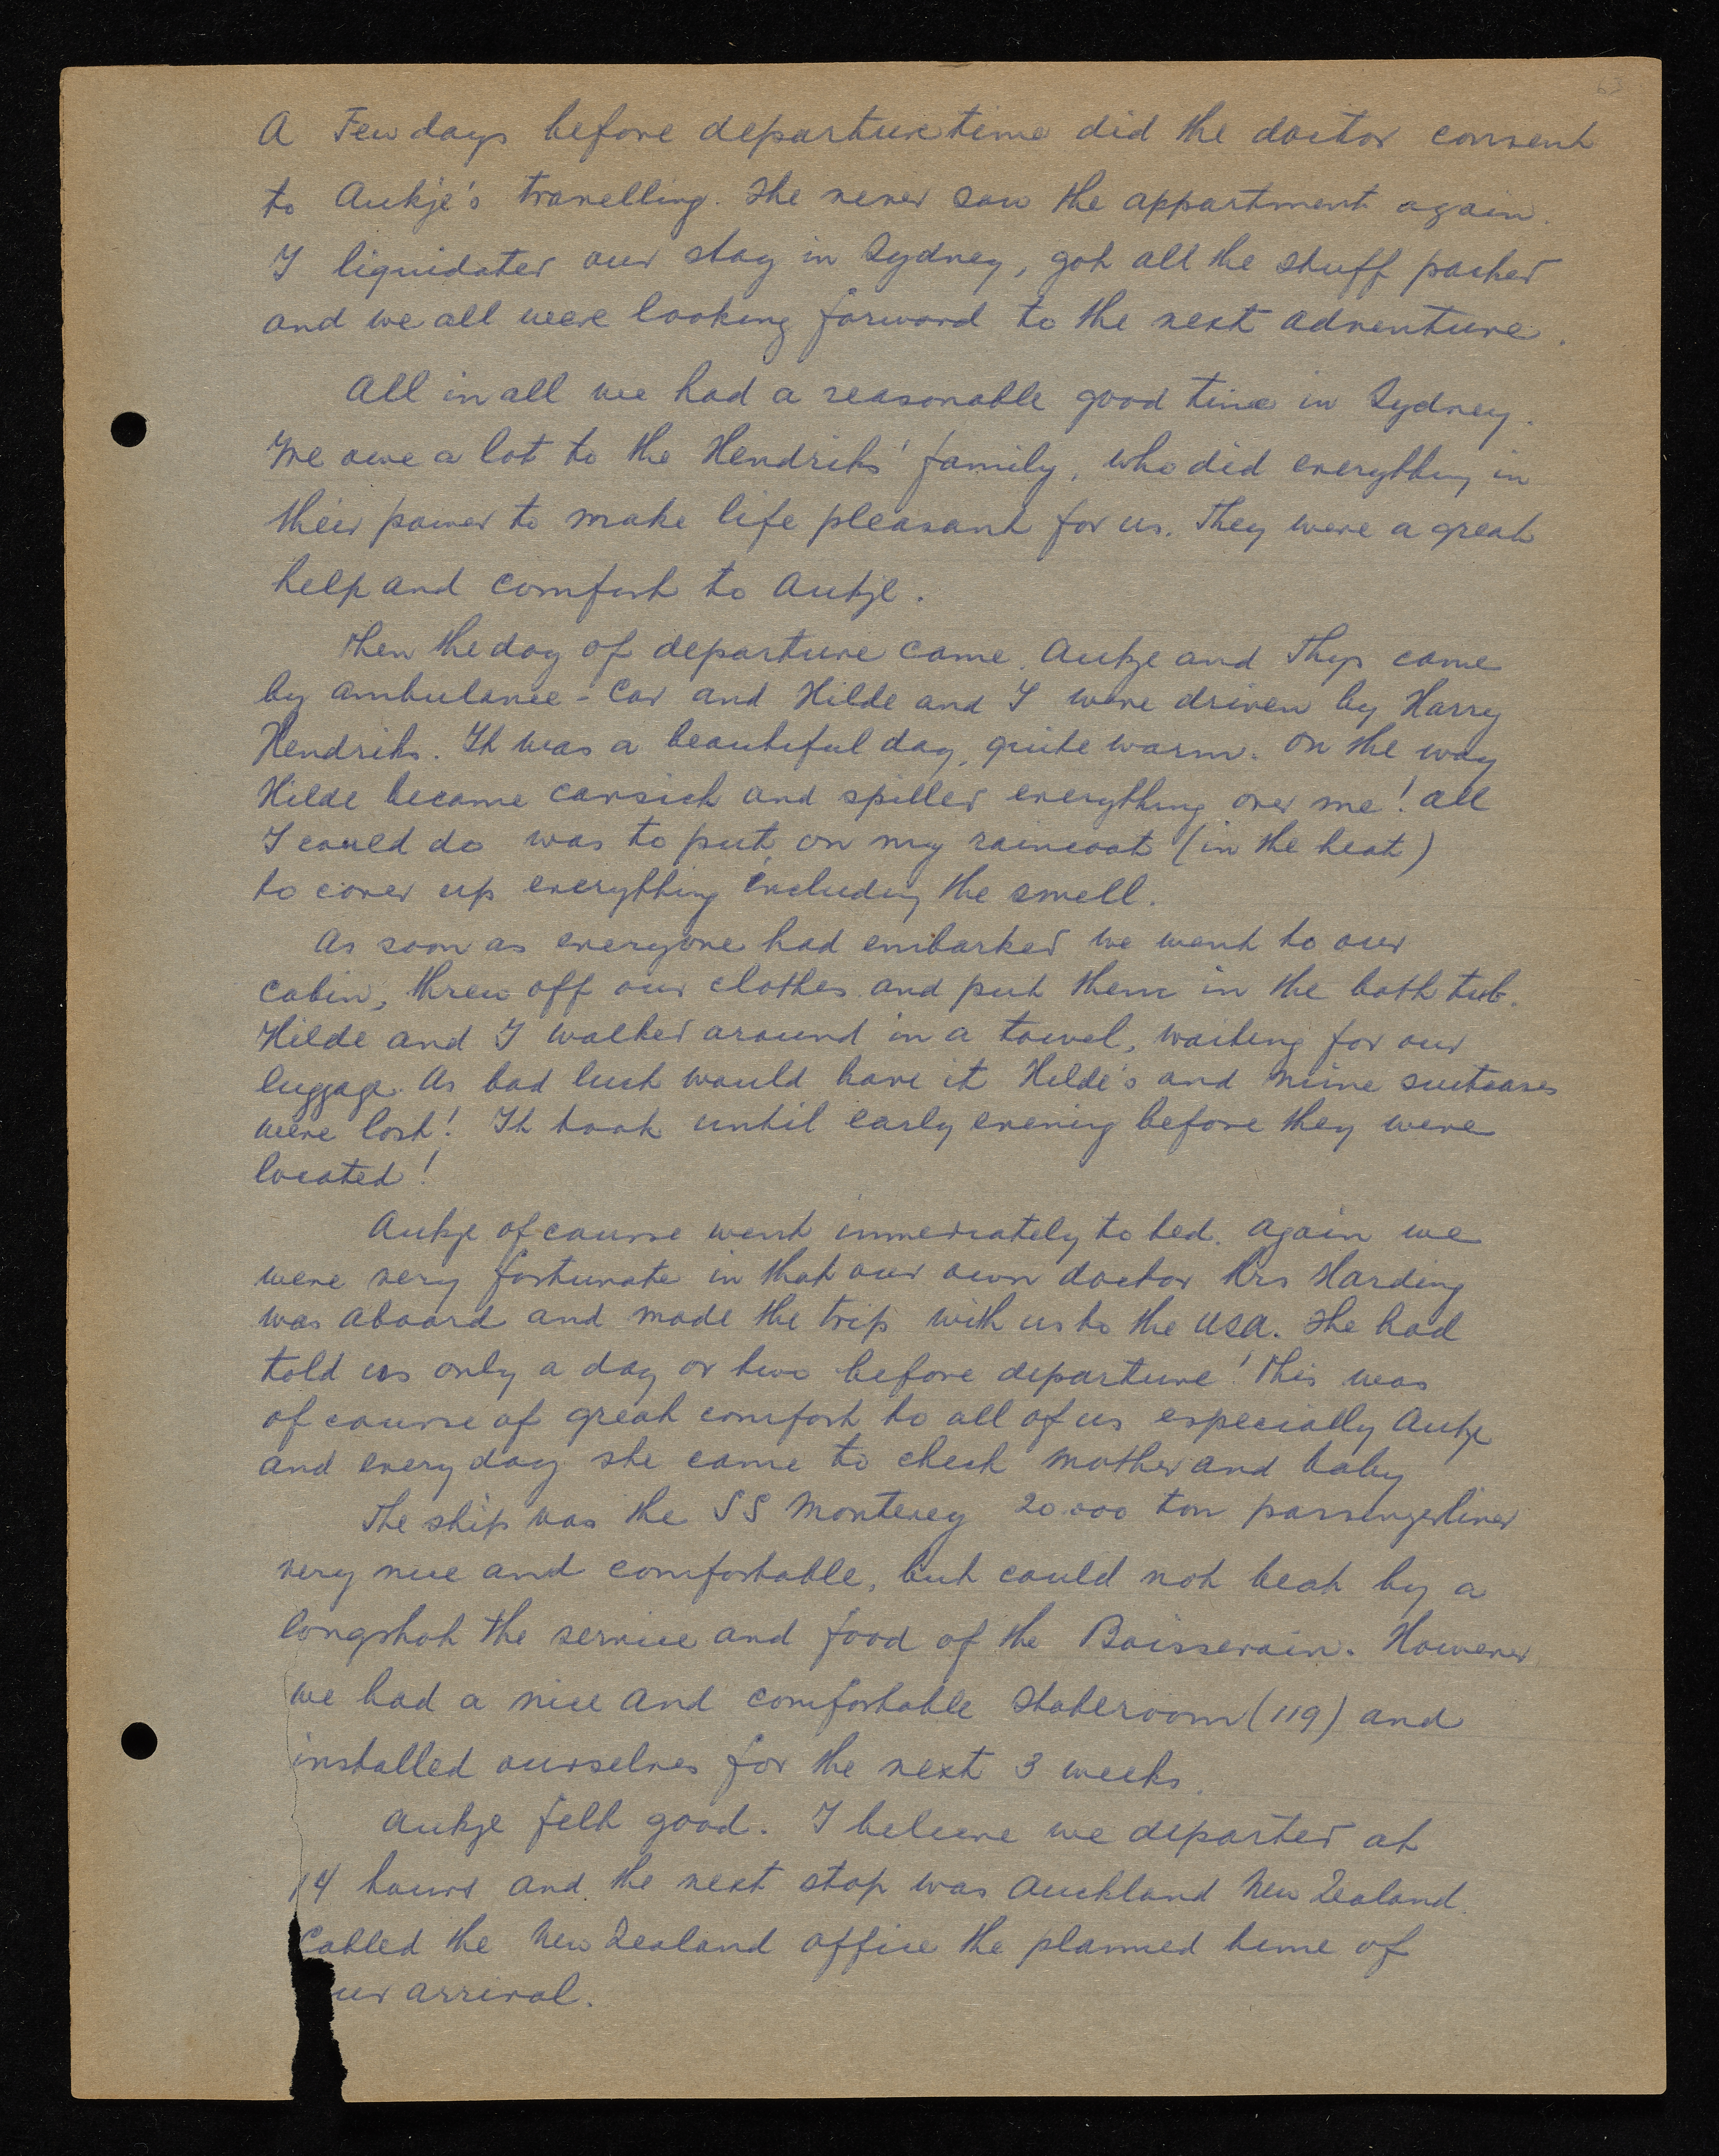 63
A Few days before departure time did the doctor consent
to Aukje's travelling. She never saw the appartment again.
I liquidated our stay in Sydney, got all the stuff packed
and we all were looking forward to the next adventure.
All in all we had a reasonable good time in Sydney.
We owe a lot to the Hendriks' family, who did everything in
their power to make life pleasant for us. They were a great
help and comfort to Aukje.
Then the day of departure came. Aukje and Thys came
by ambulance-car and Hilde and I were driven by Harry
Hendriks. It was a beautiful day, quite warm. On the way
Hilde became carsick and spilled everything over me! All
I could do was to put on my raincoat (in the heat)
to cover up everything including the smell.
As soon as everyone had embarked we went to our
cabin, threw off our clothes and put them in the bath tub.
Hilde and I walked around in a towel, waiting for our
luggage. As bad luck would have it Hilde's and mine suitcases
were lost! It took until early evening before they were
located!
Aukje of course went immediately to bed. Again we
were very fortunate in that our own doctor Mrs Harding
was aboard and made the trip with us to the USA. She had
told us only a day or two before departure! This was
of course of great comfort to all of us especially Aukje
and every day she came to check mother and baby
The ship was the SS Monterey 20.000 ton passengerliner
very nice and comfortable, but could not beat by a
longshot the service and food of the Boissevain. However
we had a nice and comfortable stateroom (119) and
installed ourselves for the next 3 weeks.
Aukje felt good. I believe we departed at
14 hours and the next stop was Auckland New Zealand.
Cabled the New Zealand office the planned time of
our arrival.